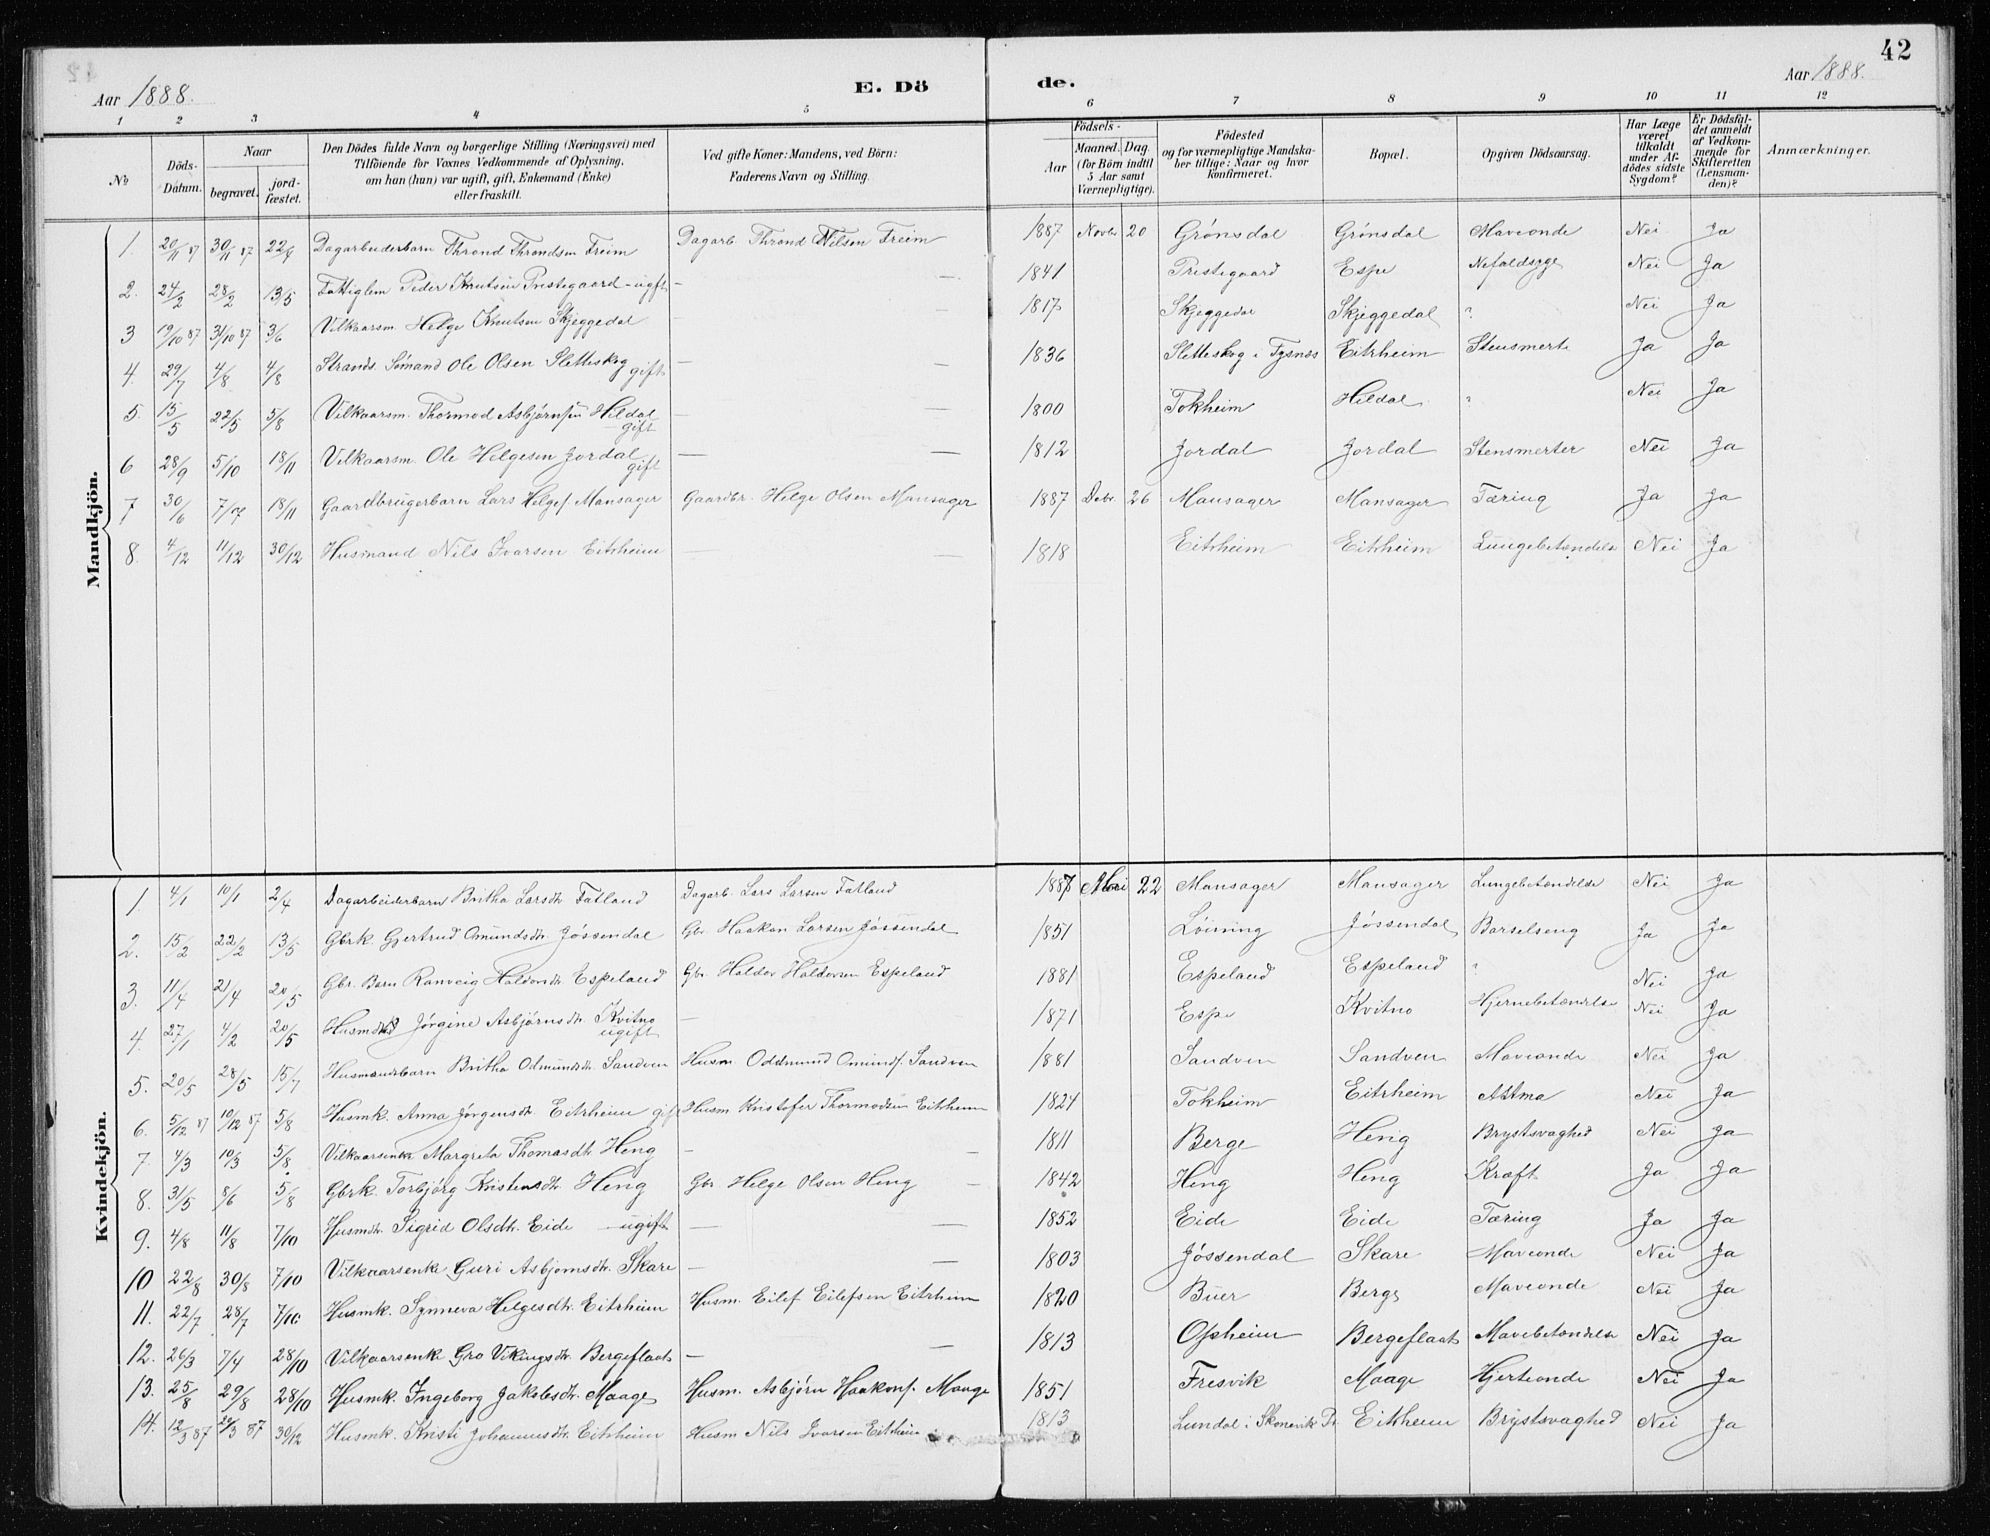 42
Aar 1888. E. Dö de. Aar 1888.
1 2 3 4 5 6 7 8 9 10 11 12
No
Döds-Datum.
Naar
begravet.
jord-fæstet.
Den Dödes fulde Navn og borgerlige Stilling (Næringsvei) med
Tilföiende for Voxnes Vedkommende af Oplysning,
om han (hun) var ugift, gift, Enkemand (Enke)
eller fraskilt.
Ved gifte Koner: Mandens, ved Börn:
Faderens Navn og Stilling.
Födsels-
Aar
Maaned. Dag.
(for Börn indtil
5 Aar samt
Værnepligtige).
Födested
og for værnepligtige Mandska-
ber tillige: Naar og hvor
konfirmeret.
Bopæl.
Opgiven Dödsaarsag.
Har Læge
været
tilkaldt
under Af-
dödes sidste
Sygdom?
Er Dödsfal-
det anmeldt
af Vedkom-
mende for
Skifteretten
(Lensman-
den)?
Anmærkninger.
Mandkjön.
1. 20/11 87 30/11 87 22/4 Dagarbeiderbarn Thrond Throndsen Freim Dagarb. Thrond Nilsen Freim 1887 Novbr 20 Grónsdal Grónsdal Maveonde Nei Ja
2. 24/2 28/2 13/5 Fattiglem Peder Knutsen Prestegaard - ugift - — 1841 Prestegaard Espe Nefaldsyge Nei Ja
3 19/10 87 31/10 87 3/6 Vilkaarsm. Helge Knutsen Skjeggedal — 1817 Skjeggedal Skjeggedal ? Nei Ja
4. 29/7 4/8 4/8 Strands. Sømand Ole Olsen Sletteskog gift — — 1836 Sletteskog i Tysnes Eitrheim Stensmerte Ja Ja
5. 15/5 22/5 5/8 Vilkaarsm. Thormod Asbjørnsen Hildal gift — — 1800 Tokheim Hildal ? Nei Ja
6 28/9 5/10 18/11 Vilkaarsm. Ole Helgesen Jordal gift — — 1812 Jordal Jordal Stensmerter Nei Ja
7 30/6 7/7 18/11 Gaardbrugerbarn Lars Helges. Mansager Gaardbr. Helge Olsen Mansager 1887 Debr. 26 Mansager Mansager Tæring Ja Ja
8. 4/12 11/12 30/12 Husmand Nils Ivarsen Eitrheim — — 1818 Eitrheim Eitrheim Lungebetændelse Nei Ja
Kvindekjön.
1 4/1 10/1 2/4 Dagarbeiderbarn Britha Larsdtr. Fatland Dagarb. Lars Larsen Fatland 1887 Mai 22 Mansager Mansager Lungebetændelse Nei Ja
2. 15/2 22/2 13/5 Gbrk. Gjertrud Omundsdtr. Jóssendal Gbr. Haakon Larsen Jóssendal 1851 Lóining Jóssendal Barselseng Ja Ja
3. 11/4 21/4 20/5 Gbr. Barn Ranveig Haldorsdtr. Espeland Gbr. Haldor Haldorsen Espeland 1881 Espeland Espeland ? Nei Ja
4. 27/1 4/2 20/5 Husmdtr. Jórgine Asbjórnsdtr. Kvitno ugift — 1871 Espe Kvitno Hjernebetændelse Nei Ja
5. 20/5 28/5 15/7 Husmandsbarn Britha Odmundsdtr. Sandven Husm. Oddmund Omunds. Sandven 1881 Sandven Sandven Maveonde Nei Ja
6. 5/12 87 10/12 87 5/8 Husmk. Anna Jórgensdtr. Eitrheim gift Husm Kristofer Thormodsen Eitrheim 1824 Tokheim Eitrheim Astma Nei Ja
7 4/3 10/3 5/8 Vilkaarsenke Margreta Thomasdtr. Heng - — 1811 Berge Heng Brystsvaghed Nei Ja
8. 31/5 8/6 5/8 Gbrk. Torbjórg Kristensdtr. Heng Gbr Helge Olsen Heng — 1842 Heng Heng Kræft Ja Ja
9. 4/8 11/8 7/10 Husmdtr. Sigrid Olsdtr. Eide — ugift — — 1852 Eide Eide Tæring Ja Ja
10 22/8 30/8 7/10 Vilkaarsenke Guri Asbjornsdtr. Skare — — 1803 Jóssendal Skare Maveonde Nei Ja
11. 22/7 28/7 7/10 Husmk. Synneva Helgesdtr. Eitrheim Husm. Eilef Eilefsen Eitrheim 1820 Buer Berge Maveonde Nei Ja
12. 26/3 7/4 28/10 Vilkaarsenke Gro Vikingsdtr. Bergeflaat — — 1813 Opheim Bergeflaat Mavebetændelse Nei Ja
13. 25/8 29/8 28/10 Husmk. Ingeborg Jakobsdtr. Maage Husm. Asbjórn Haakons. Maage 1851 Fresvik Maage Hjerteonde Nei Ja
14. 12/3 87 20/3 87 30/12 Husmk. Kristi Johannesdtr. Eitrheim Husm Nils Ivarsen Eitrheim 1813 Lundal i Skonevik Pr. Eitrheim Brystsvaghed Nei Ja